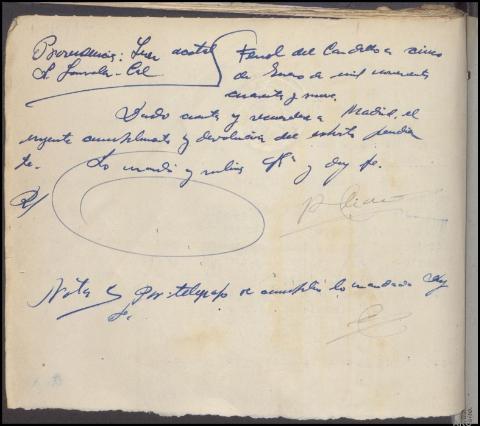 Providencia: Juez acctal
Sr. - Cil
Ferrol del Caudillo a cinco
de Enero de mil novecientos
cuarenta y nueve.
Dada cuenta y recuérdese a Madrid, el
urgente cumplimiento y devolución del exhorto pendien
te. Lo mandó y rubrica Sª y doy fe.
R/
Nota Por telégrafo se cumplió lo mandado doy
fe.